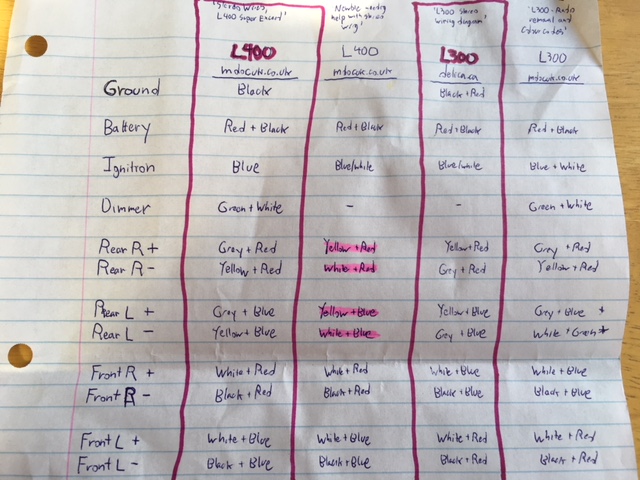 'Stereo Wires, Newbie needing 'L300 Stereo 'L300 - Audio
L400 Super Exceed' help with stereo wiring diagram' removal and
wrig' colour codes'
L400 L400 L300 L300
mdocuk.co.uk mdocuk.co.uk delica.ca mdocuk.co.uk
Ground Black Black + Red
Battery Red + Black Red + Black Red + Black Red + Black
Ignition Blue Blue/White Blue/White Blue + White
Dimmer Green + White - - Green + White
Rear R + Grey + Red Yellow + Red Yellow + Red Grey + Red
Rear R - Yellow + Red White + Red Grey + Red Yellow + Red
Rear L + Grey + Blue Yellow + Blue Yellow + Blue Grey + Blue *
Rear L - Yellow + Blue White + Blue Grey + Blue White + Green *
Front R + White + Red White + Red White + Blue White + Blue
Front R - Black + Red Black + Red Black + Blue Black + Blue
Front L + White + Blue White + Blue White + Red White + Red
Front L - Black + Blue Black + Blue Black + Red Black + Red